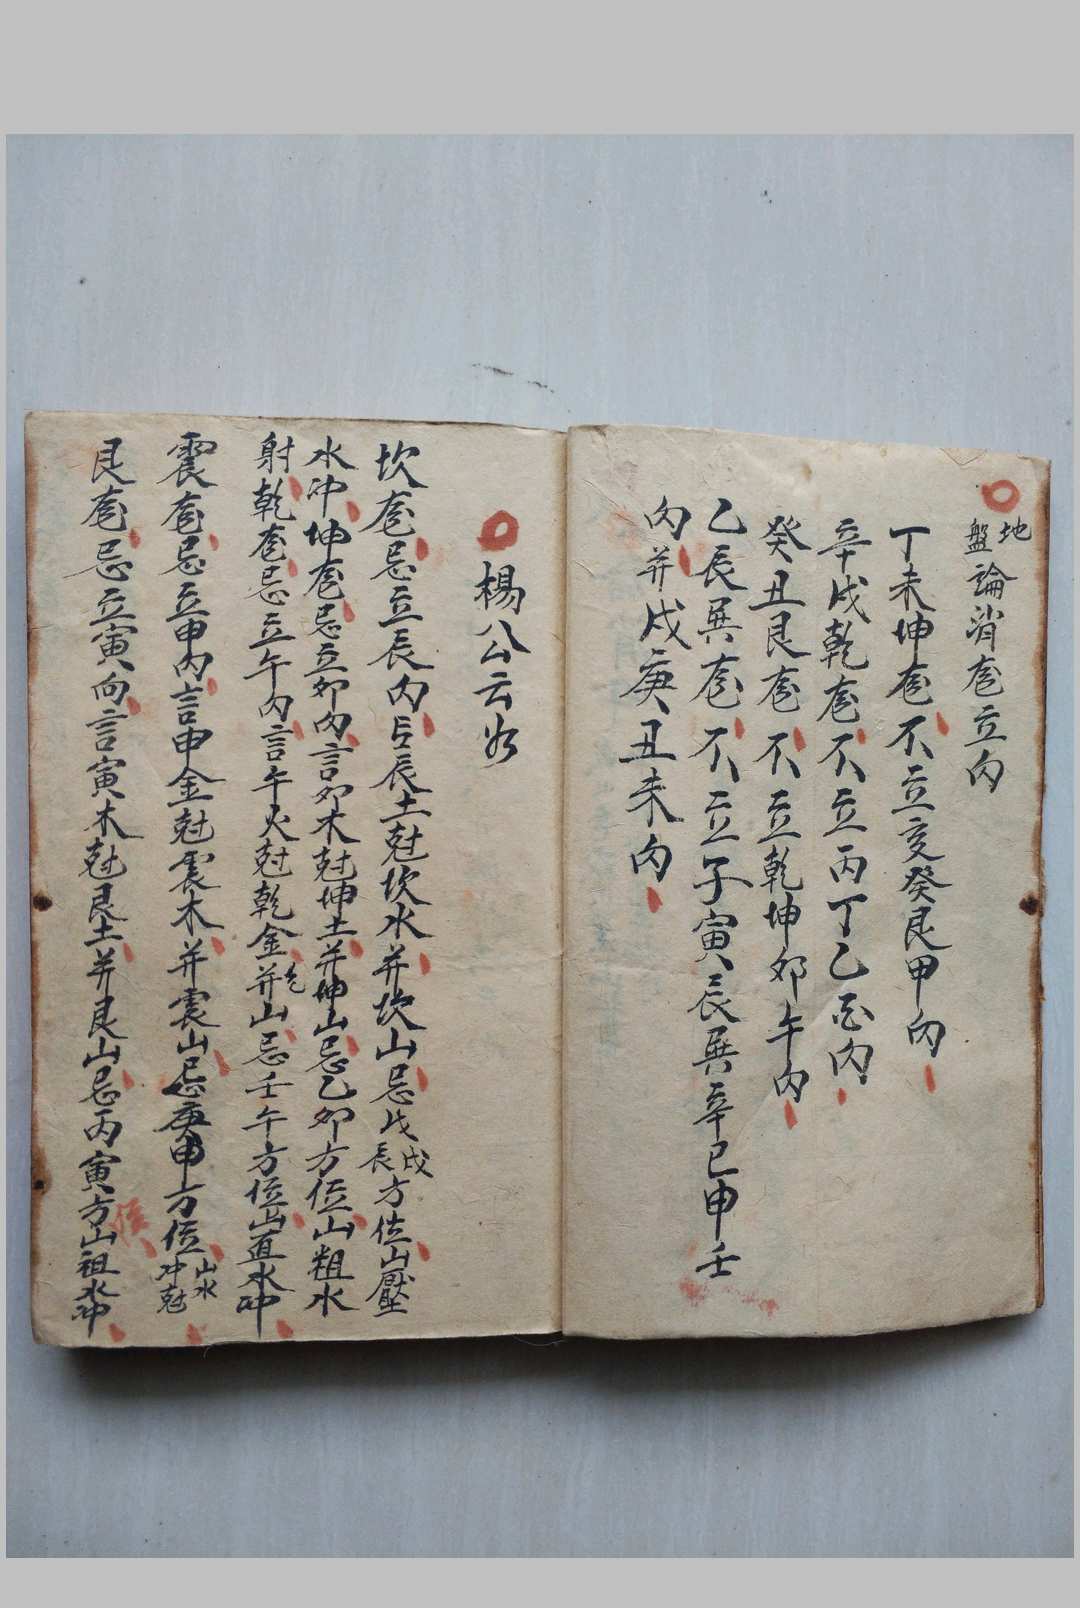 地盤論消庭立向
丁未坤庭不立亥癸艮甲向
辛戌乾庭不立丙丁乙酉向
癸丑艮庭不立乾坤卯午向
乙辰巽庭不立子寅辰巽辛巳申壬
向并戌庚丑未向
楊公云
坎庭忌立辰向言辰土尅坎水并坎山忌戊戌辰方位山壓
水冲坤庭忌立卯向言卯木尅坤土并坤山忌乙卯方位山粗水
射乾庭忌立午向言午火尅乾金并乾山忌壬午方位山直水冲
震庭忌立申向言申金尅震木并震山忌庚申方位山水冲尅
艮庭忌立寅向言寅木尅艮土并艮山忌丙寅方山粗水冲
位